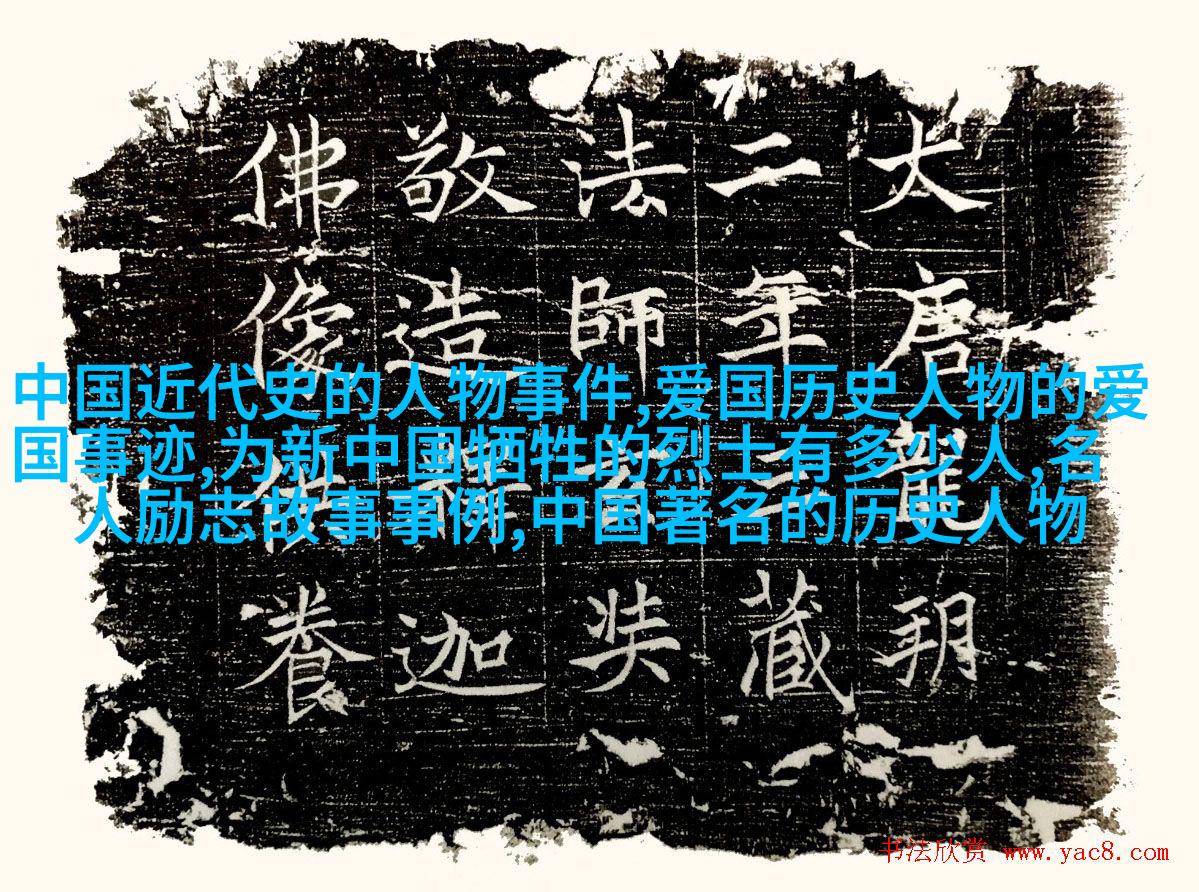 大唐龍朔
二年三藏
法師玄奘
敬造釋迦
佛像供養
中国近代史的人物事件,爱国历史人物的爱
国事迹,为新中国牺牲的烈士有多少人,名
人励志故事事例,中国著名的历史人物
书法欣赏 www.yac8.com